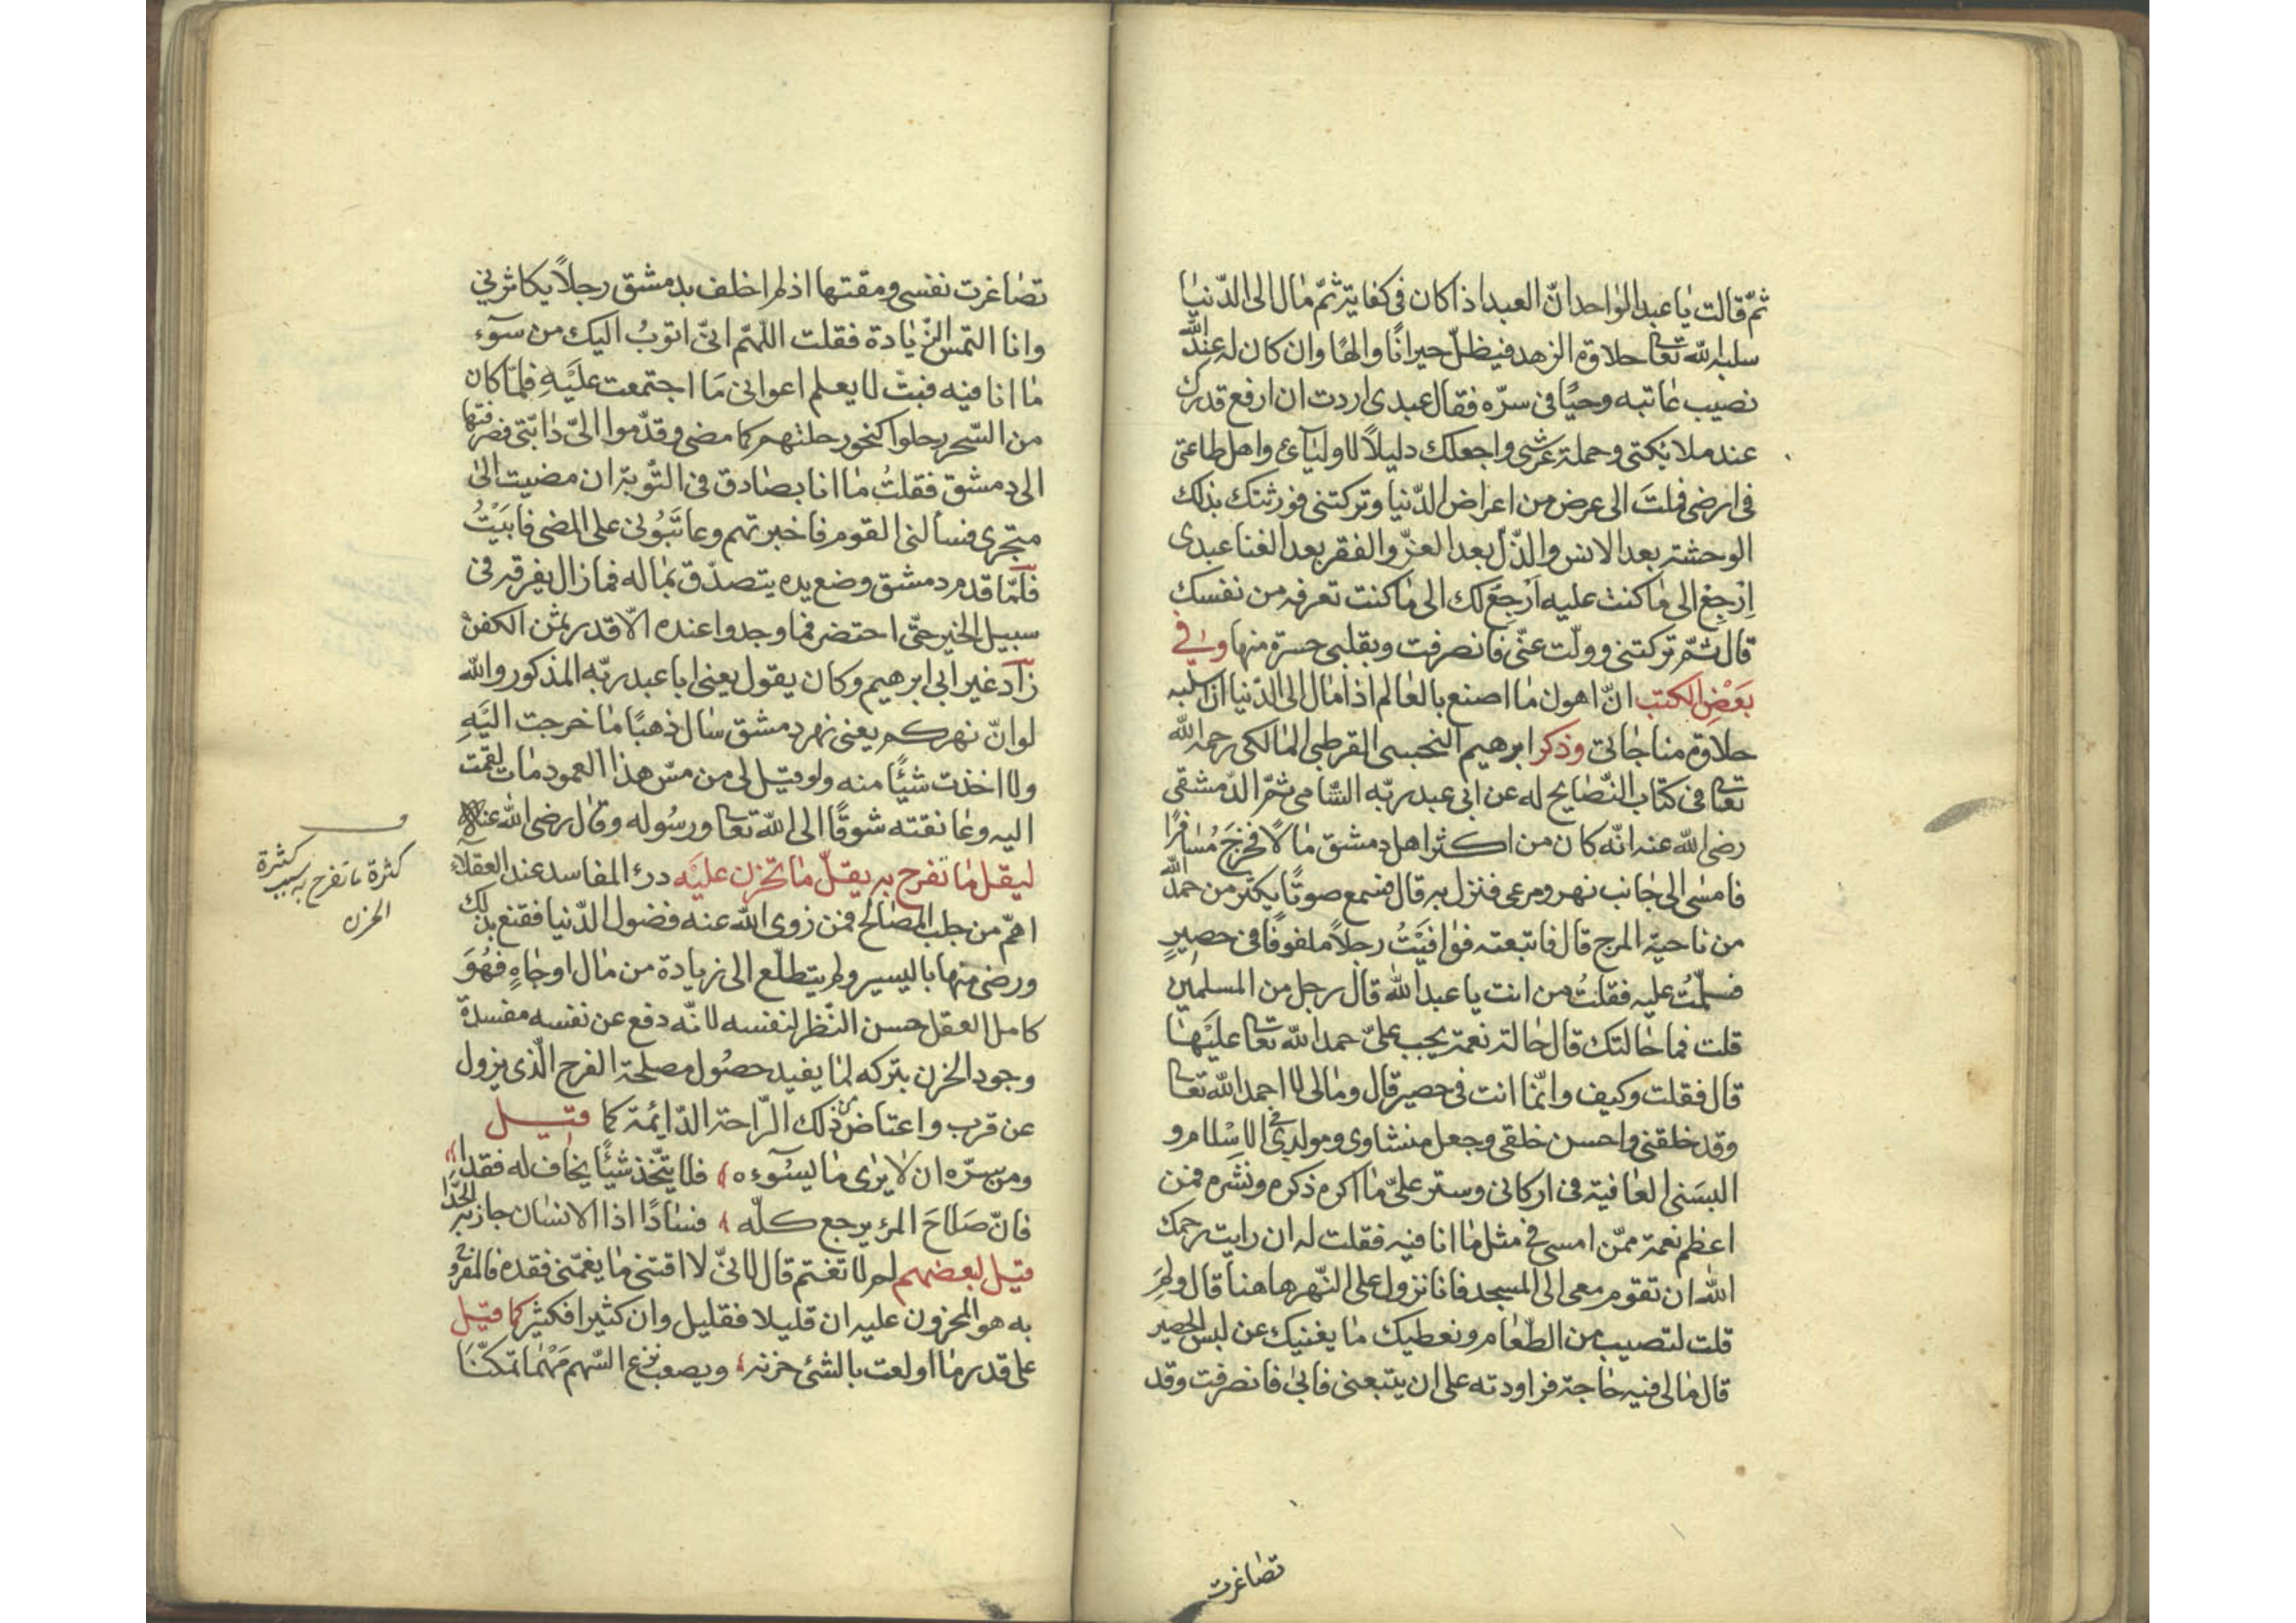 ثمّ قالت يا عبد الواحد انّ العبد اذا كان فى كفاية ثمّ مال الى الدّنيا
سلبه الله تعا حلاوة الزهد فيظلّ حيرانًا والهًا وان كان له عند الله
نصيب عاتبه وحيًا فى سرّه فقال عبدى اردت ان ارفع قدرك
عند ملائكتى وحملة عرشى واجعلك دليلاً لاوليآئى واهل طاعتى
فى ارضى فملتَ الى عرض من اعراض الدّنيا وتركتنى فورثتك بذلك
الوحشة بعد الانس والذّلّ بعد العزّ والفقر بعد الغنا عبدى
اِرْجِعْ الى ما كنت عليه اَرْجِعْ لك الى ما كنت تعرفه من نفسك
قال ثمّ تركتنى وولّت عنّى فانصرفت وبقلبى حسرة منها وفي
بَعْضِ الكتب انّ اهون ما اصنع بالعالم اذا مال الى الدّنيا ان اسلبه
حلاوة مناجاتى وذكر ابرهيم القرطبى المالكى رحمه الله
تعا فى كتاب النّصايح له عن ابى عبد ربّه الشّامى ثمّ الدّمشقى
رضى الله عنه انّه كان من اكثر اهل دمشق مالاً فخرَجَ مُسافرًا
فامسى الى جانب نهر ومرعى فنزل به قال فسمع صوتًا يكثر من حمد الله
من ناحية المرج قال فاتبعته فوافَيْتُ رجلاً ملفوفًا فى حصيرٍ
فسلّمْتُ عليه فقلتُ من انت يا عبد الله قال رجل من المسلمين
قلت فما حالتك قال حالة نعمة يجب علىّ حمد الله تعا عليْها
قال فقلت وكيف وانّما انت فى حصير قال وما لى لا احمد الله تعا
وقد خلقنى واحسن خلقى وجعل منشاوى ومولدى فى الاسلام و
البسَنى العافية فى اركانى وستر علىّ ما اكره ذكره ونشره فمن
اعظم نعمة ممّن امسى فى مثل ما انا فيه فقلت له ان رايت رحمك
الله ان تقوم معى الى المسجد فانا نزول على النّهر هاهنا قال ولِمَ
قلت لتصيب من الطّعام ونعطيك ما يغنيك عن لبس الحصير
قال ما لى فيه حاجة فراودته على ان يتبعنى فابى فانصرفت وقد
تصاغرت
تصاغرت نفسى ومقتها اذ لم اخلف بدمشق رجلاً يكاثرنى
وانا التمس الزّيادة فقلت اللّهمّ انّى اتوبُ اليك من سوٓء
ما انا فيه فبتّ لا يعلم اعوانى مَا اجتمعت عليْهِ فلمّا كان
من السّحر رحلوا كنحو رحلتهم كما مضى وقدّموا الىّ دابّتى فصرفتها
الى دمشق فقلتُ ما انا بصادق فى التّوبة ان مضيت الى
متجرى فسألنى القوم فاخبرتهم وعاتبُونى على المضى فابَيْتُ
فلمّا قدم دمشق وضع يده يتصدّق بماله فما زال يفرقه فى
سبيل الخير حتّى احتضر فما وجدوا عنده الّا قدر ثمن الكفن
زآد غير ابى ابرهيم وكان يقول يعنى ابا عبد ربّه المذكور والله
لو انّ نهركم يعنى نهر دمشق سال ذهبًا ما خرجت اليْهِ
ولا اخذت شيئًا منه ولو قيل لى من مسّ هذا العمود مات لقمت
اليه وعانقته شوقًا الى الله تعا ورسُوله وقال رضى الله عنه
ليقل ما تفرح به يقلّ ما تحزن عليْه درء المفاسد عند العقلآء
اهمّ من جلب المصالح فمن زوى الله عنه فضول الدّنيا فقنع بذلك
ورضى منها باليسير ولم يتطلّع الى زيادة من مال او جاهٍ فهُوَ
كامل العقل حسن النّظر لنفسه لانّه دفع عن نفسه مفسدة
وجود الحزن بتركه لما يفيد حصُول مصلحة الفرح الّذى يزول
عن قرب واعتاض من ذلك الرّاحة الدّايمة كما قيل
ومن سرّه ان لا يرى ما يسُوٓءه فلا يتّخذ شيئًا يخاف له فقدا
فانّ صَلاحَ المرء يرجع كلّه فسادًا اذا الانسان جاز به الحدّا
قيل لبعضهم لم لا تغتم قال لانّى لا اقتنى ما يغمّنى فقده فالمفروح
به هو المحزون عليه ان قليلا فقليل وان كثيرا فكثير كما قيل
على قدر ما اولعت بالشئ حزنه ويصعب نزع السّهم مَهْما تمكّنَا
كثرة ما تفرح به سبب كثرة
الحزن